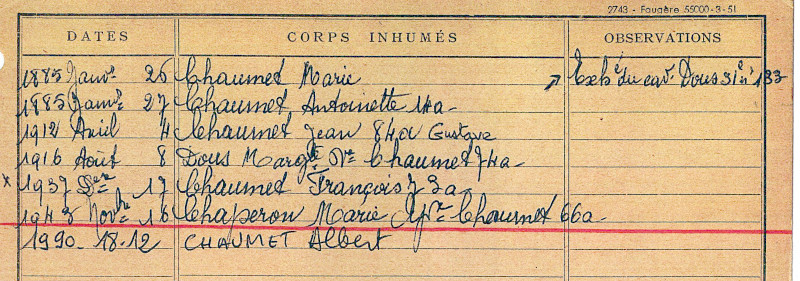 2743 - Fougère 55000-3-51
DATES CORPS INHUMÉS OBSERVATIONS
1885 Janvr 26 Chaumet Marie Exhée du cavu Dous 31e n° 133
1885 Janvr 27 Chaumet Antoinette 14a-
1912 Avril 4 Chaumet Jean 84a Gustave
1916 Août 8 Dous Margte Ve Chaumet 74a-
x 1937 Dbre 17 Chaumet François 73a-
1943 Novbre 16 Chaperon Marie Chaumet 66a-
1990-18-12 CHAUMET Albert